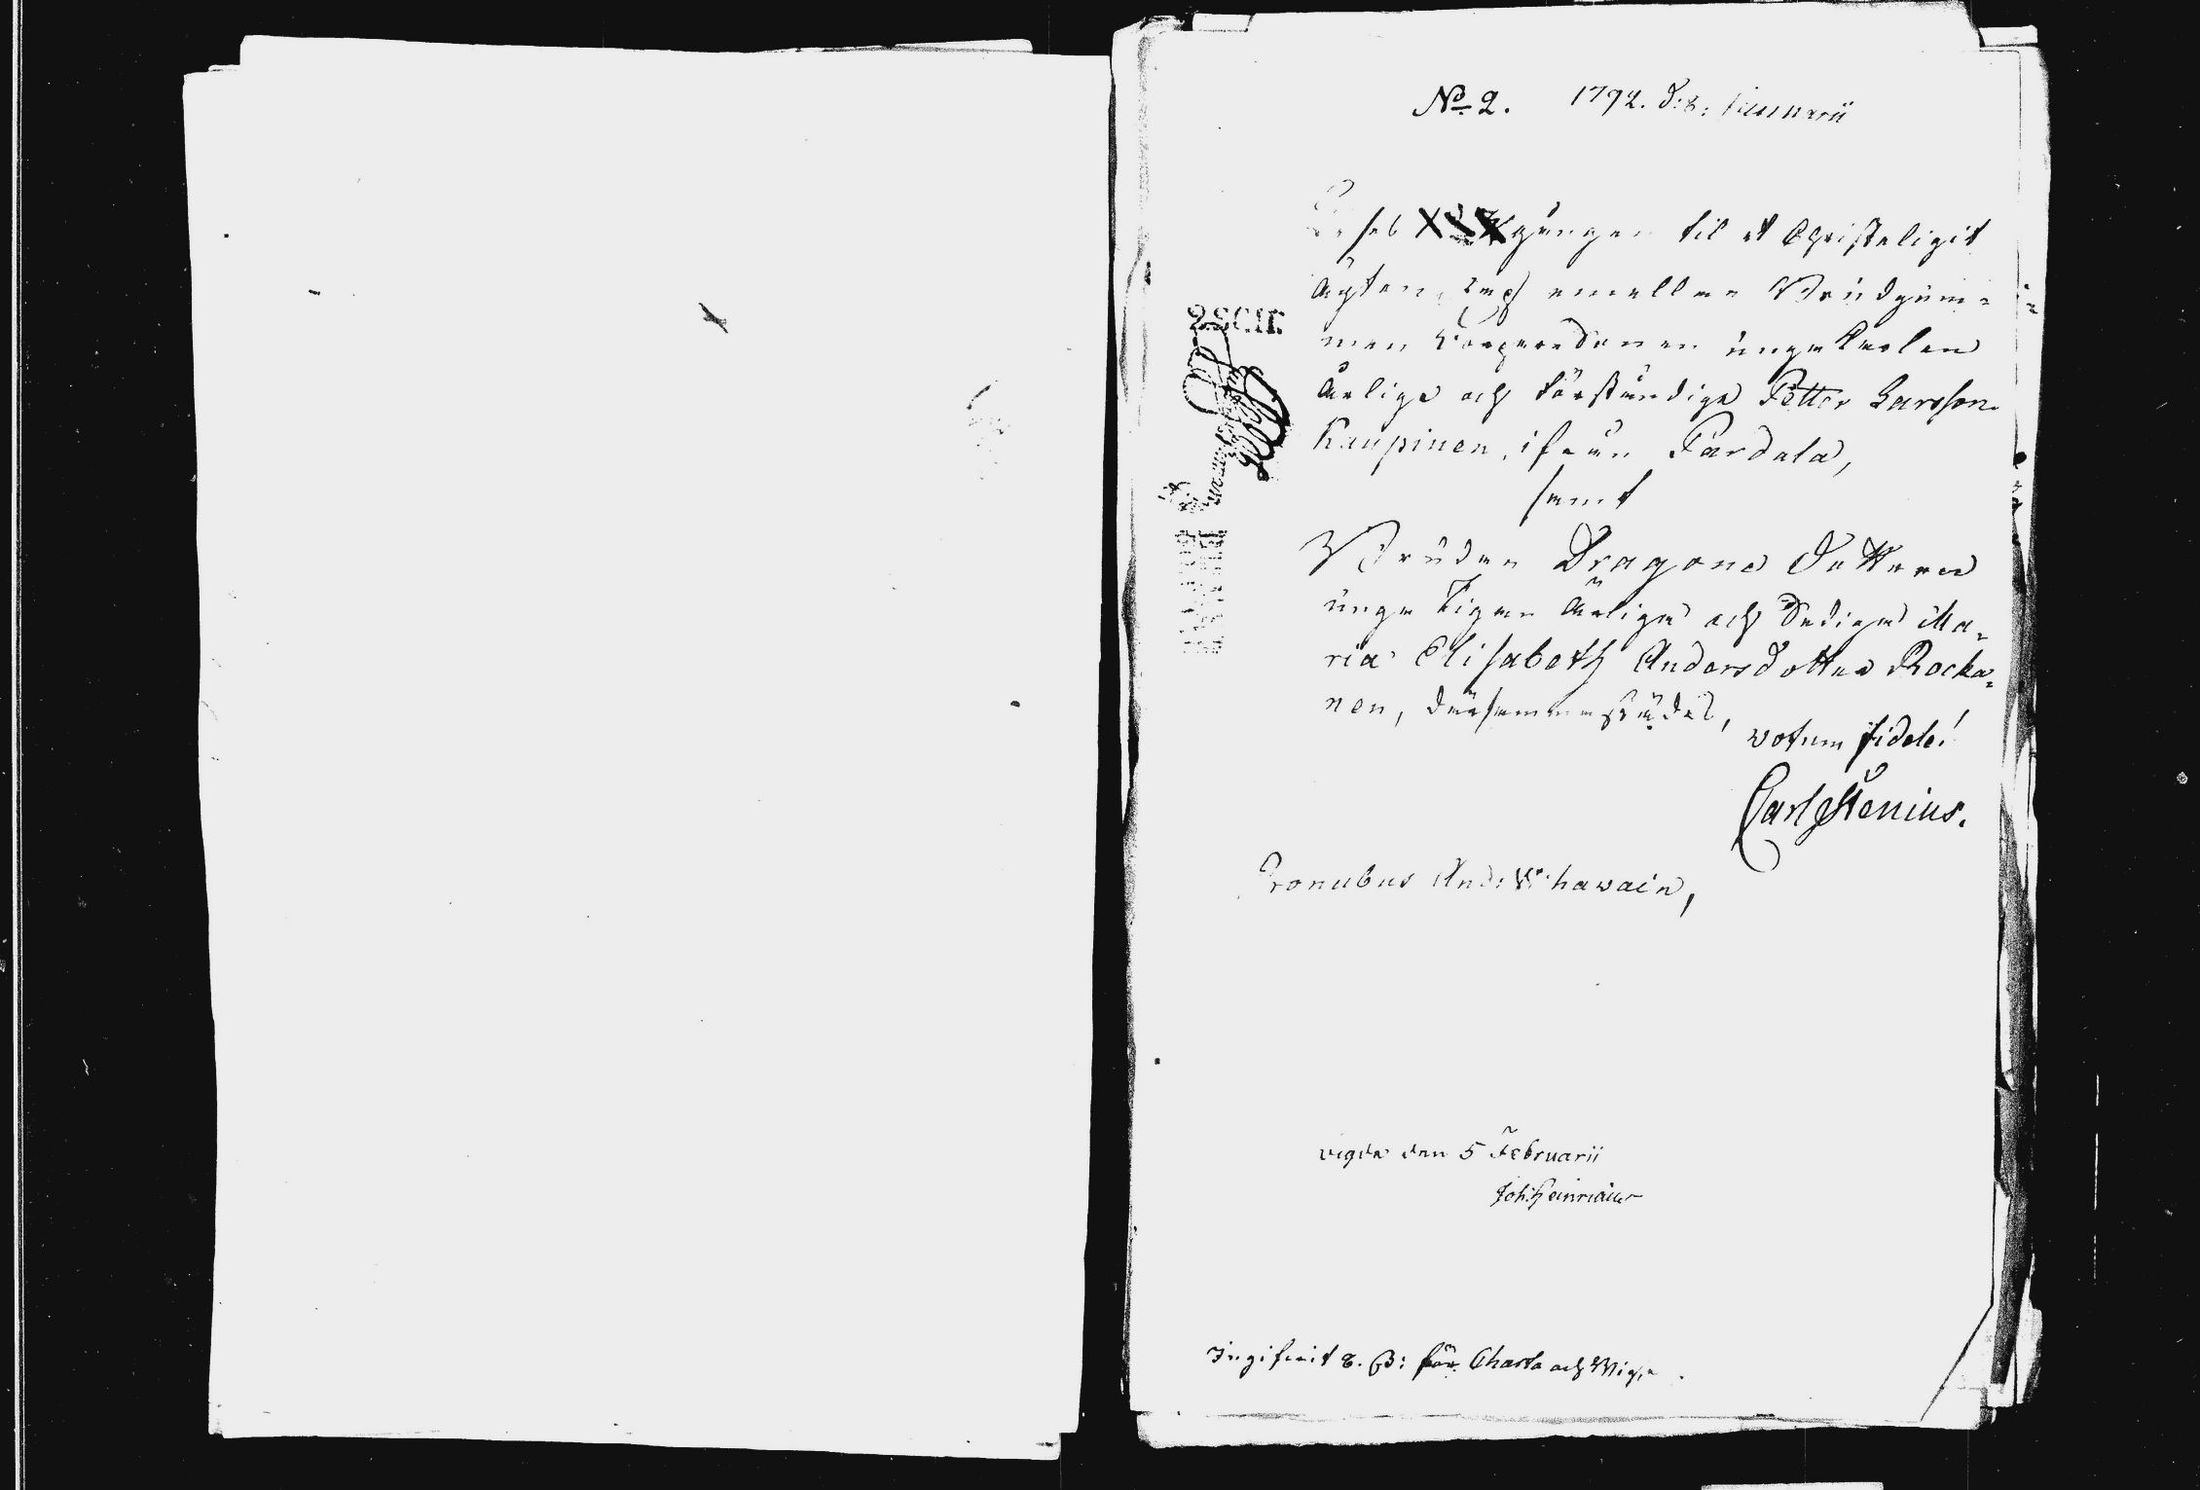 No 2. 1792. d: 8: Januarii
gångor til et Christeligit
Ägtenskap emellan Brudgum-
men unge Karlen
Ärlige och Förståndige Petter Larsson
Kaupinen, ifrån Pardala,
samt
Bruden Dragone Dottren
unga Pigan Ärliga och Dediga Ma-
ria Elisabeth Andersdotter Rocka-
nen, dersammastädes,
votum fidele!
Carl Stenius.
Pronubus And:
vigda den 5 Februarii
Joh: Heinricius
Ingifwit 8. ß: för Charta och
2.SCHR.